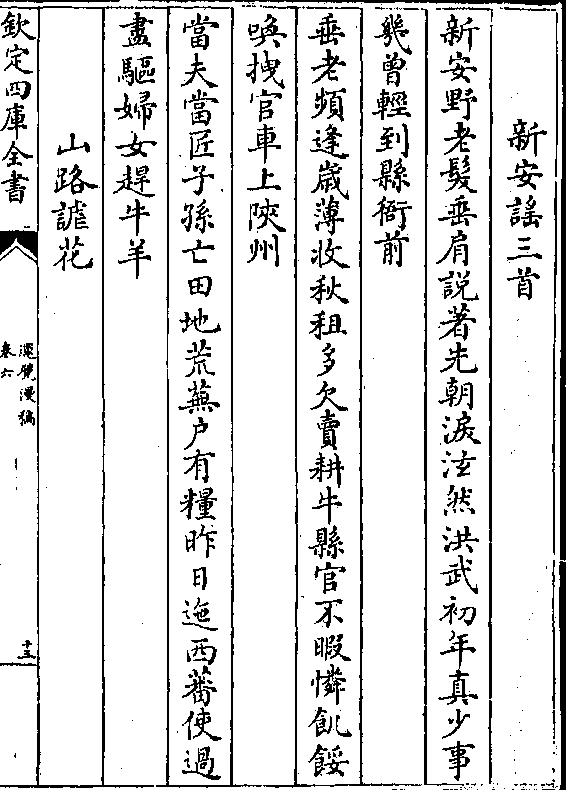 新安謡三首
新安野老髮垂肩説著先朝淚泫然洪武初年真少事
幾曾輕到縣衙前
垂老頻逢歲薄收秋租多欠賣耕牛縣官不暇憐飢餒
喚拽官車上陝州
當夫當匠子孫亡田地荒蕪户有糧昨日迤西蕃使過
盡驅婦女趕牛羊
山路謔花
欽定四庫全書
瀼覺漫稿
卷六
十五